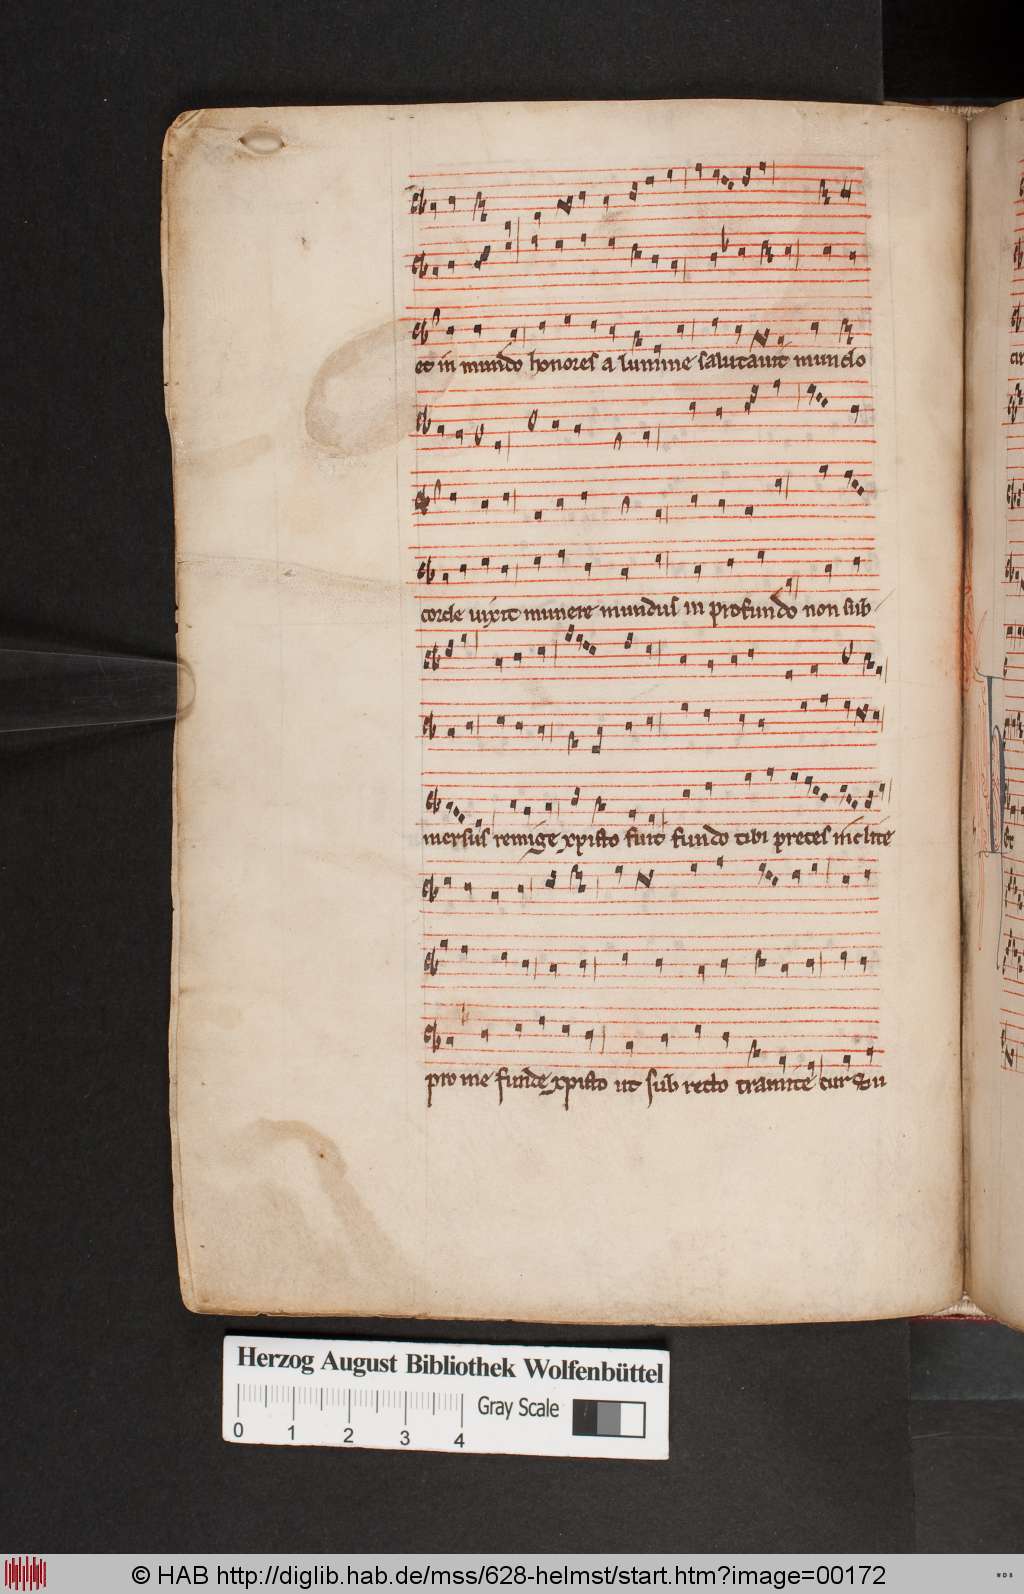 et in mundo honores a lumine salutauit mundo
corde uixit munere mundus in profundo non sub
mersus remige xpisto fuit fundo tibi preces inclite
pro me funde xpisto ut sub recto tramite cursu
Herzog August Bibliothek Wolfenbüttel
Gray Scale
0 1 2 3 4
© HAB http://diglib.hab.de/mss/628-helmst/start.htm?image=00172